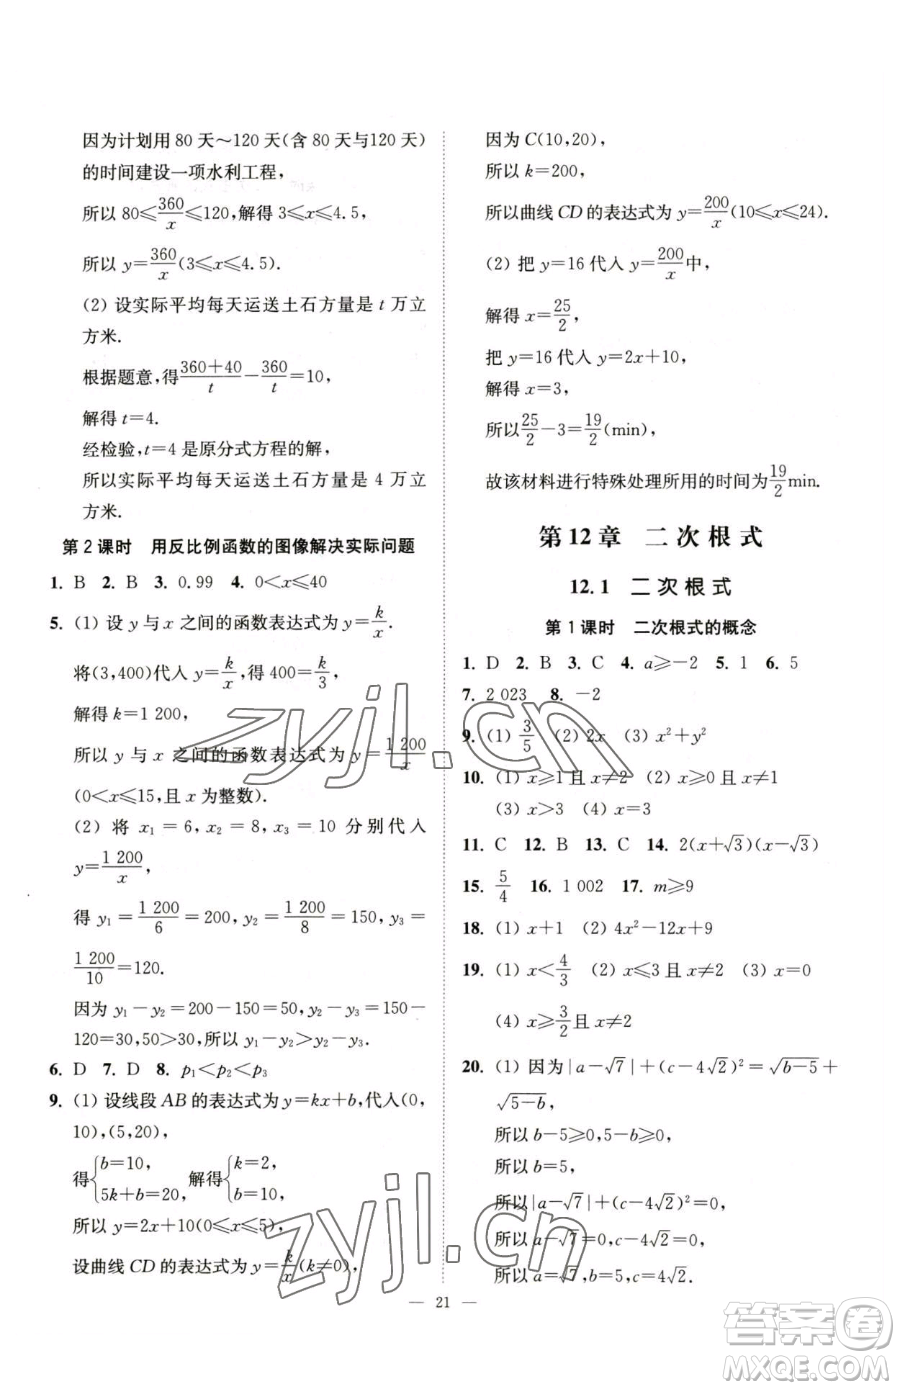 因为计划用 80 天～120 天(含 80 天与120 天)
的时间建设一项水利工程,
所以 80≤360/x≤120,解得 3≤x≤4.5,
所以 y=360/x(3≤x≤4.5).
(2) 设实际平均每天运送土石方量是 t 万立
方米.
根据题意,得(360+40)/t−360/t=10,
解得 t=4.
经检验,t=4 是原分式方程的解,
所以实际平均每天运送土石方量是 4 万立
方米.
第 2 课时 用反比例函数的图像解决实际问题
1. B 2. B 3. 0.99 4. 0<x≤40
5. (1) 设 y 与 x 之间的函数表达式为 y=k/x.
将(3,400)代入 y=k/x,得 400=k/3,
解得 k=1 200,
所以 y 与 x 之间的函数表达式为 y=1 200/x
(0<x≤15,且 x 为整数).
(2) 将 x₁=6,x₂=8,x₃=10 分别代入
y=1 200/x,
得 y₁=1 200/6=200,y₂=1 200/8=150,y₃=
1 200/10=120.
因为 y₁−y₂=200−150=50,y₂−y₃=150−
120=30,50>30,所以 y₁−y₂>y₂−y₃.
6. D 7. D 8. p₁<p₂<p₃
9. (1) 设线段 AB 的表达式为 y=kx+b,代入(0,
10),(5,20),
得{b=10, 5k+b=20, 解得{k=2, b=10,
所以 y=2x+10(0≤x≤5),
设曲线 CD 的表达式为 y=k/x(k≠0),
因为 C(10,20),
所以 k=200,
所以曲线 CD 的表达式为 y=200/x(10≤x≤24).
(2) 把 y=16 代入 y=200/x中,
解得 x=25/2,
把 y=16 代入 y=2x+10,
解得 x=3,
所以25/2−3=19/2(min),
故该材料进行特殊处理所用的时间为19/2min.
第 12 章 二次根式
12.1 二次根式
第 1 课时 二次根式的概念
1. D 2. B 3. C 4. a≥−2 5. 1 6. 5
7. 2 023 8. −2
9. (1) 3/5 (2) 2x (3) x²+y²
10. (1) x≥1 且 x≠2 (2) x≥0 且 x≠1
(3) x>3 (4) x=3
11. C 12. B 13. C 14. 2(x+√3)(x−√3)
15. 5/4 16. 1 002 17. m≥9
18. (1) x+1 (2) 4x²−12x+9
19. (1) x<4/3 (2) x≤3 且 x≠2 (3) x=0
(4) x≥3/2且 x≠2
20. (1) 因为|a−√7|+(c−4√2)²=√(b−5)+
√(5−b),
所以 b−5≥0,5−b≥0,
所以 b=5,
所以|a−√7|+(c−4√2)²=0,
所以 a−√7=0,c−4√2=0,
所以 a=√7,b=5,c=4√2.
— 21 —
zyjl.cn
zyjl.cn
答案圈
MXQE.COM